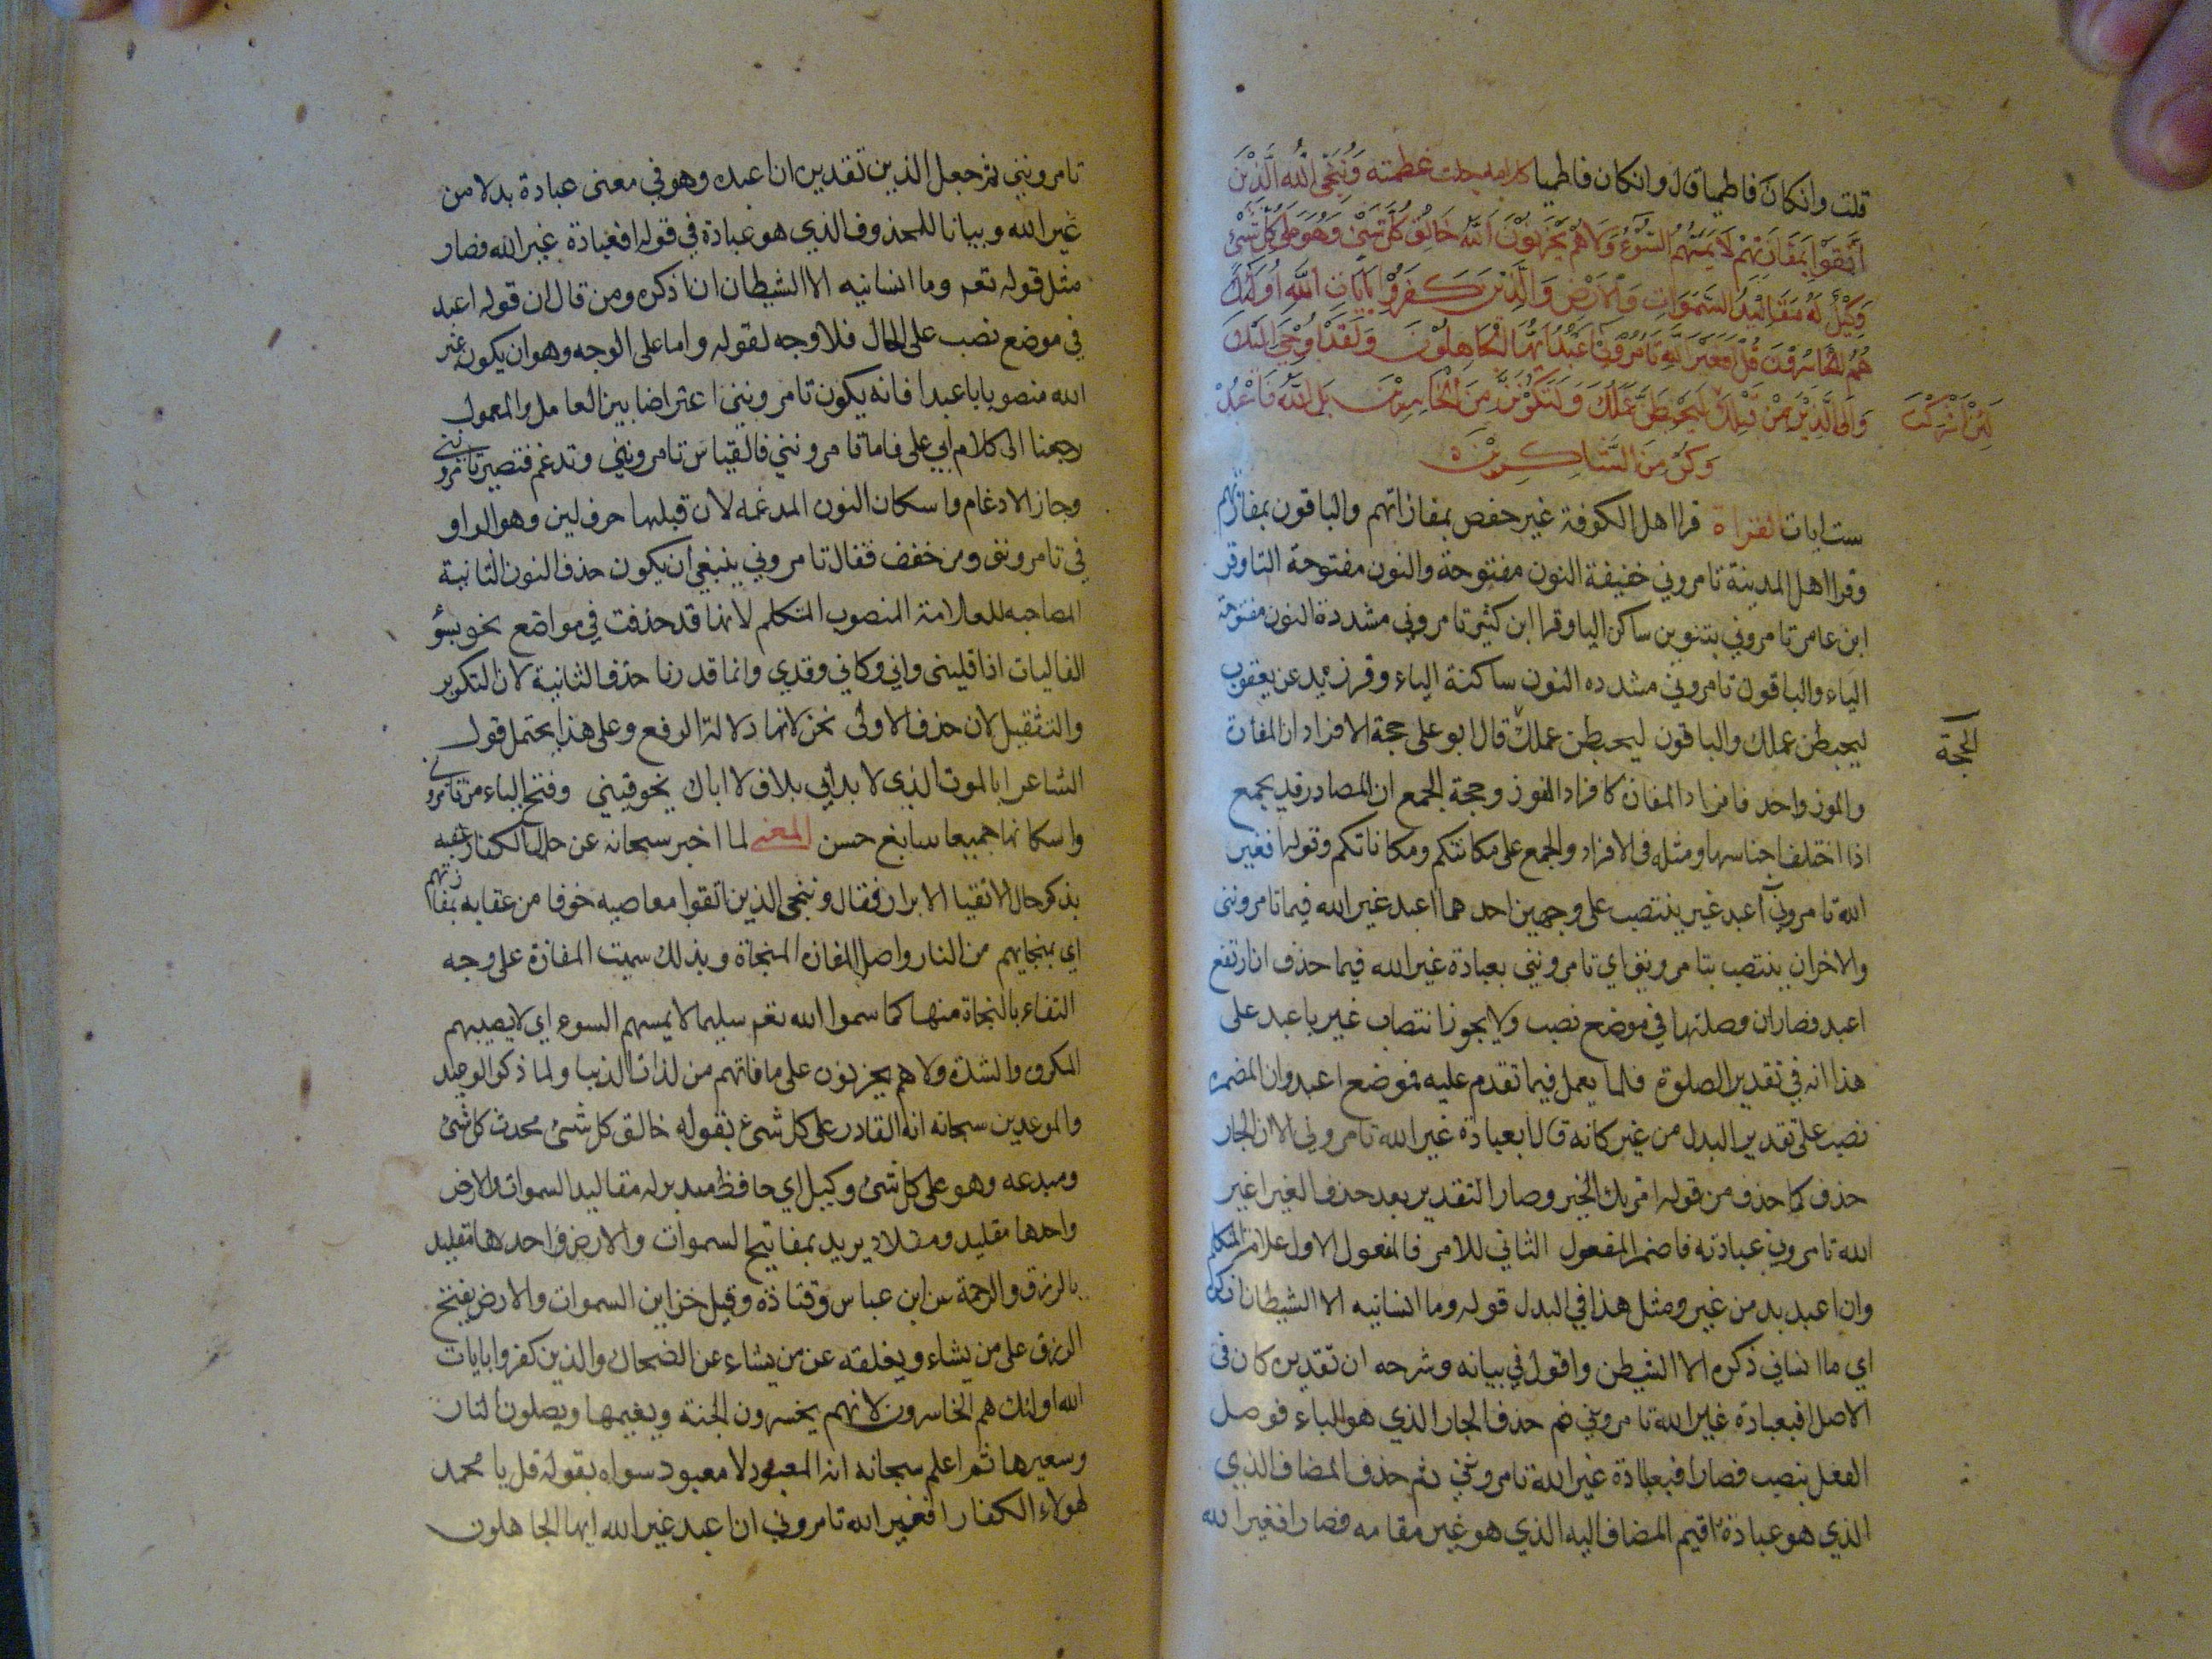 قلت وانكان فاطميا قال وانكان فاطميا كلامه جلت عظمته وَيُنَجِّى اللّٰهُ الَّذِيْنَ
اتَّقَوْا بِمَفَازَتِهِمْ لَا يَمَسُّهُمُ السُّوْءُ وَلَا هُمْ يَحْزَنُوْنَ اَللّٰهُ خَالِقُ كُلِّ شَىْءٍ وَهُوَ عَلٰى كُلِّ شَىْءٍ
وَكِيْلٌ لَهُ مَقَالِيْدُ السَّمٰوَاتِ وَالْاَرْضِ وَالَّذِيْنَ كَفَرُوْا بِاٰيَاتِ اللّٰهِ اُولٰئِكَ
هُمُ الْخَاسِرُوْنَ قُلْ اَفَغَيْرَ اللّٰهِ تَاْمُرُوْنِّىْ اَعْبُدُ اَيُّهَا الْجَاهِلُوْنَ وَلَقَدْ اُوْحِىَ اِلَيْكَ
وَاِلَى الَّذِيْنَ مِنْ قَبْلِكَ لَيَحْبَطَنَّ عَمَلُكَ وَلَتَكُوْنَنَّ مِنَ الْخَاسِرِيْنَ بَلِ اللّٰهَ فَاعْبُدْ
لَئِنْ اَشْرَكْتَ
وَكُنْ مِنَ الشَّاكِرِيْنَ
ست ايات القراة قرا اهل الكوفة غير حفص بمفازاتهم والباقون بمفازتهم
وقرا اهل المدينة تامروني خفيفة النون مفتوحة والنون مفتوحة اليا وقر
ابن عامر تامروني بتنوين ساكن اليا وقرا ابن كثير تامروني مشددة النون مفتوحة
الياء والباقون تامروني مشدده النون ساكنة الياء وقر زيد عن يعقوب
ليحبطن عملك والباقون ليحبطن عملك قال ابو علي حجة الافراد ان المفازة
الحجة
والفوز واحد فافراد المفازة كافراد الفوز وحجة الجمع ان المصادر قد يجمع
اذا اختلف اجناسها ومثله في الافراد والجمع على مكانتكم ومكاناتكم وقوله افغير
الله تامروني اعبد غير ينتصب على وجهين احدهما اعبد غير الله فيما تامرونني
والاخر ان ينتصب بتامرونني اي تامرونني بعبادة غير الله فيما حذف ان ارتفع
اعبد فصار ان وصلتها في موضع نصب ولا يجوز انتصاب غير باعبد على
هذا انه في تقدير الصلوة فلما يعمل فيما تقدم عليه فموضع اعبد وان المضمره
نصب على تقدير البدل من غير كانه قال ابعبادة غير الله تامروني الا ان الجار
حذف كما حذف من قوله امرتك الخير وصار التقدير بعد حذف الغير اغير
الله تامروني عبادته فاضمر المفعول الثاني للامر فالمفعول الاول علامة المتكلم
وان اعبد بدل من غير ومثل هذا في البدل قوله وما انسانيه الا الشيطان ان اذكره
اي ما انساني ذكره الا الشيطن واقول في بيانه وشرحه ان تقديره كان في
الاصل افبعبادة غير الله تامروني ثم حذف الجار الذي هو الباء فوصل
الفعل بنصب فصار افبعبادة غير الله تامرونني ثم حذف المضاف الذي
الذي هو عبادة اقيم المضاف اليه الذي هو غير مقامه فصار افغير الله
تامرونني ثم جعل الذين تقديره ان اعبده وهو في معنى عبادة بدلا من
غير الله وبيانا للمحذوف الذي هو عبادة في قوله افعبادة غير الله فصار
مثل قوله تعم وما انسانيه الا الشيطان ان اذكره ومن قال ان قوله اعبد
في موضع نصب على الحال فلا وجه لقوله واما على الوجه وهو ان يكون غير
الله منصوبا باعبد فانه يكون تامرونني اعتراضا بين العامل والمعمول
رجعنا الى كلام ابي على فاما تامرونني فالقياس تامرونني وتدغم فتصير تامرونني
وجاز الادغام واسكان النون المدغمه لان قبلها حرف لين وهو الواو
في تامرونني ومن خفف فقال تامروني ينبغي ان يكون حذف النون الثانية
المصاحبه للعلامة المنصوب المتكلم لانها قد حذفت في مواضع نحو يسؤ
الفاليات اذا قليني واني وكاني وقدي وانما قدرنا حذف الثانية لان التكرير
والتثقيل لان حذف الاولى نحن لانها دلالة الرفع وعلى هذا يحتمل قول
الشاعر ابالموت الذي لا بد اني بلاق لا اباك يخوفيني وفتح الياء من تامروني
واسكانها جميعا سايغ حسن المعنى لما اخبر سبحانه عن حال الكفار عقبه
بذكر حال الاتقيا الابرار فقال وننجي الذين اتقوا معاصيه خوفا من عقابه بمفازتهم
اي بمنجاتهم من النار واصل المفازة المنجاة وبذلك سميت المفازة على وجه
التفاء بالنجاة منها كما سموا الله تعم سليما لا يمسهم السوء اي لا يصيبهم
المكروه والشدة ولا هم يحزنون على ما فاتهم من لذات الدنيا ولما ذكر الوعيد
والموعدين سبحانه انه القادر على كل شيء بقوله خالق كل شئ محدث كل شئ
ومبدعه وهو على كل شئ وكيل اي حافظ مدبر له مقاليد السموات والارض
واحدها مقليد ومقلاد يريد بمفاتيح السموات والارض واحدها مقليد
بالرزق والرحمة عن ابن عباس وقتادة وقيل خزاين السموات والارض يفتح
الرزق على من يشاء ويغلقه عن من يشاء عن الضحاك والذين كفروا بايات
الله اولئك هم الخاسرون لانهم يخسرون الجنة ونعيمها ويصلون النار
وسعيرها ثم اعلم سبحانه انه المعبود لا معبود سواه بقوله قل يا محمد
لهولاء الكفار افغير الله تامروني ان اعبد غير الله ايها الجاهلون